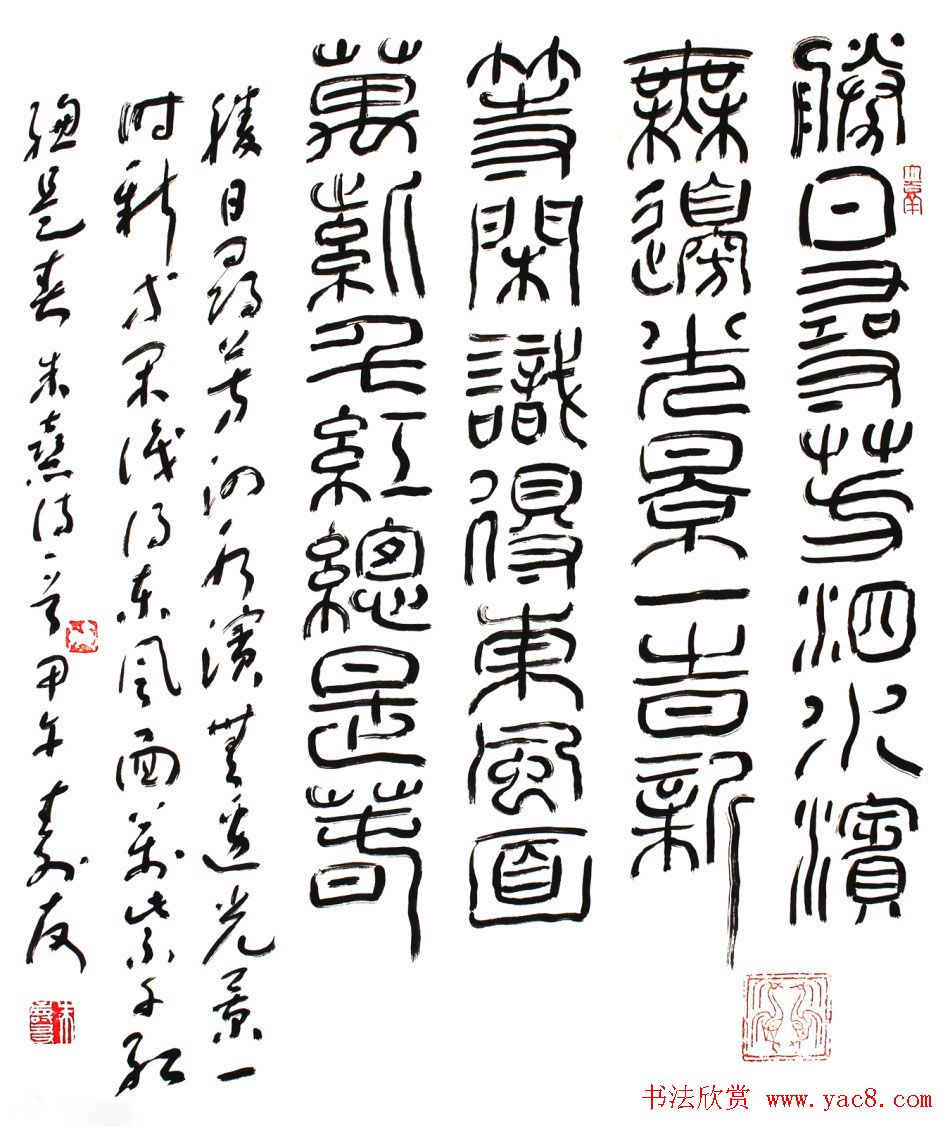 勝日尋芳泗水濱
無邊光景一旹新
等閑識得東風面
萬紫千紅總是春
勝日尋芳泗水濱無邊光景一
时新等閑識得東風面萬紫千紅
總是春 朱熹诗一首 甲午 寿友
朱壽友
书法欣赏 www.yac8.com